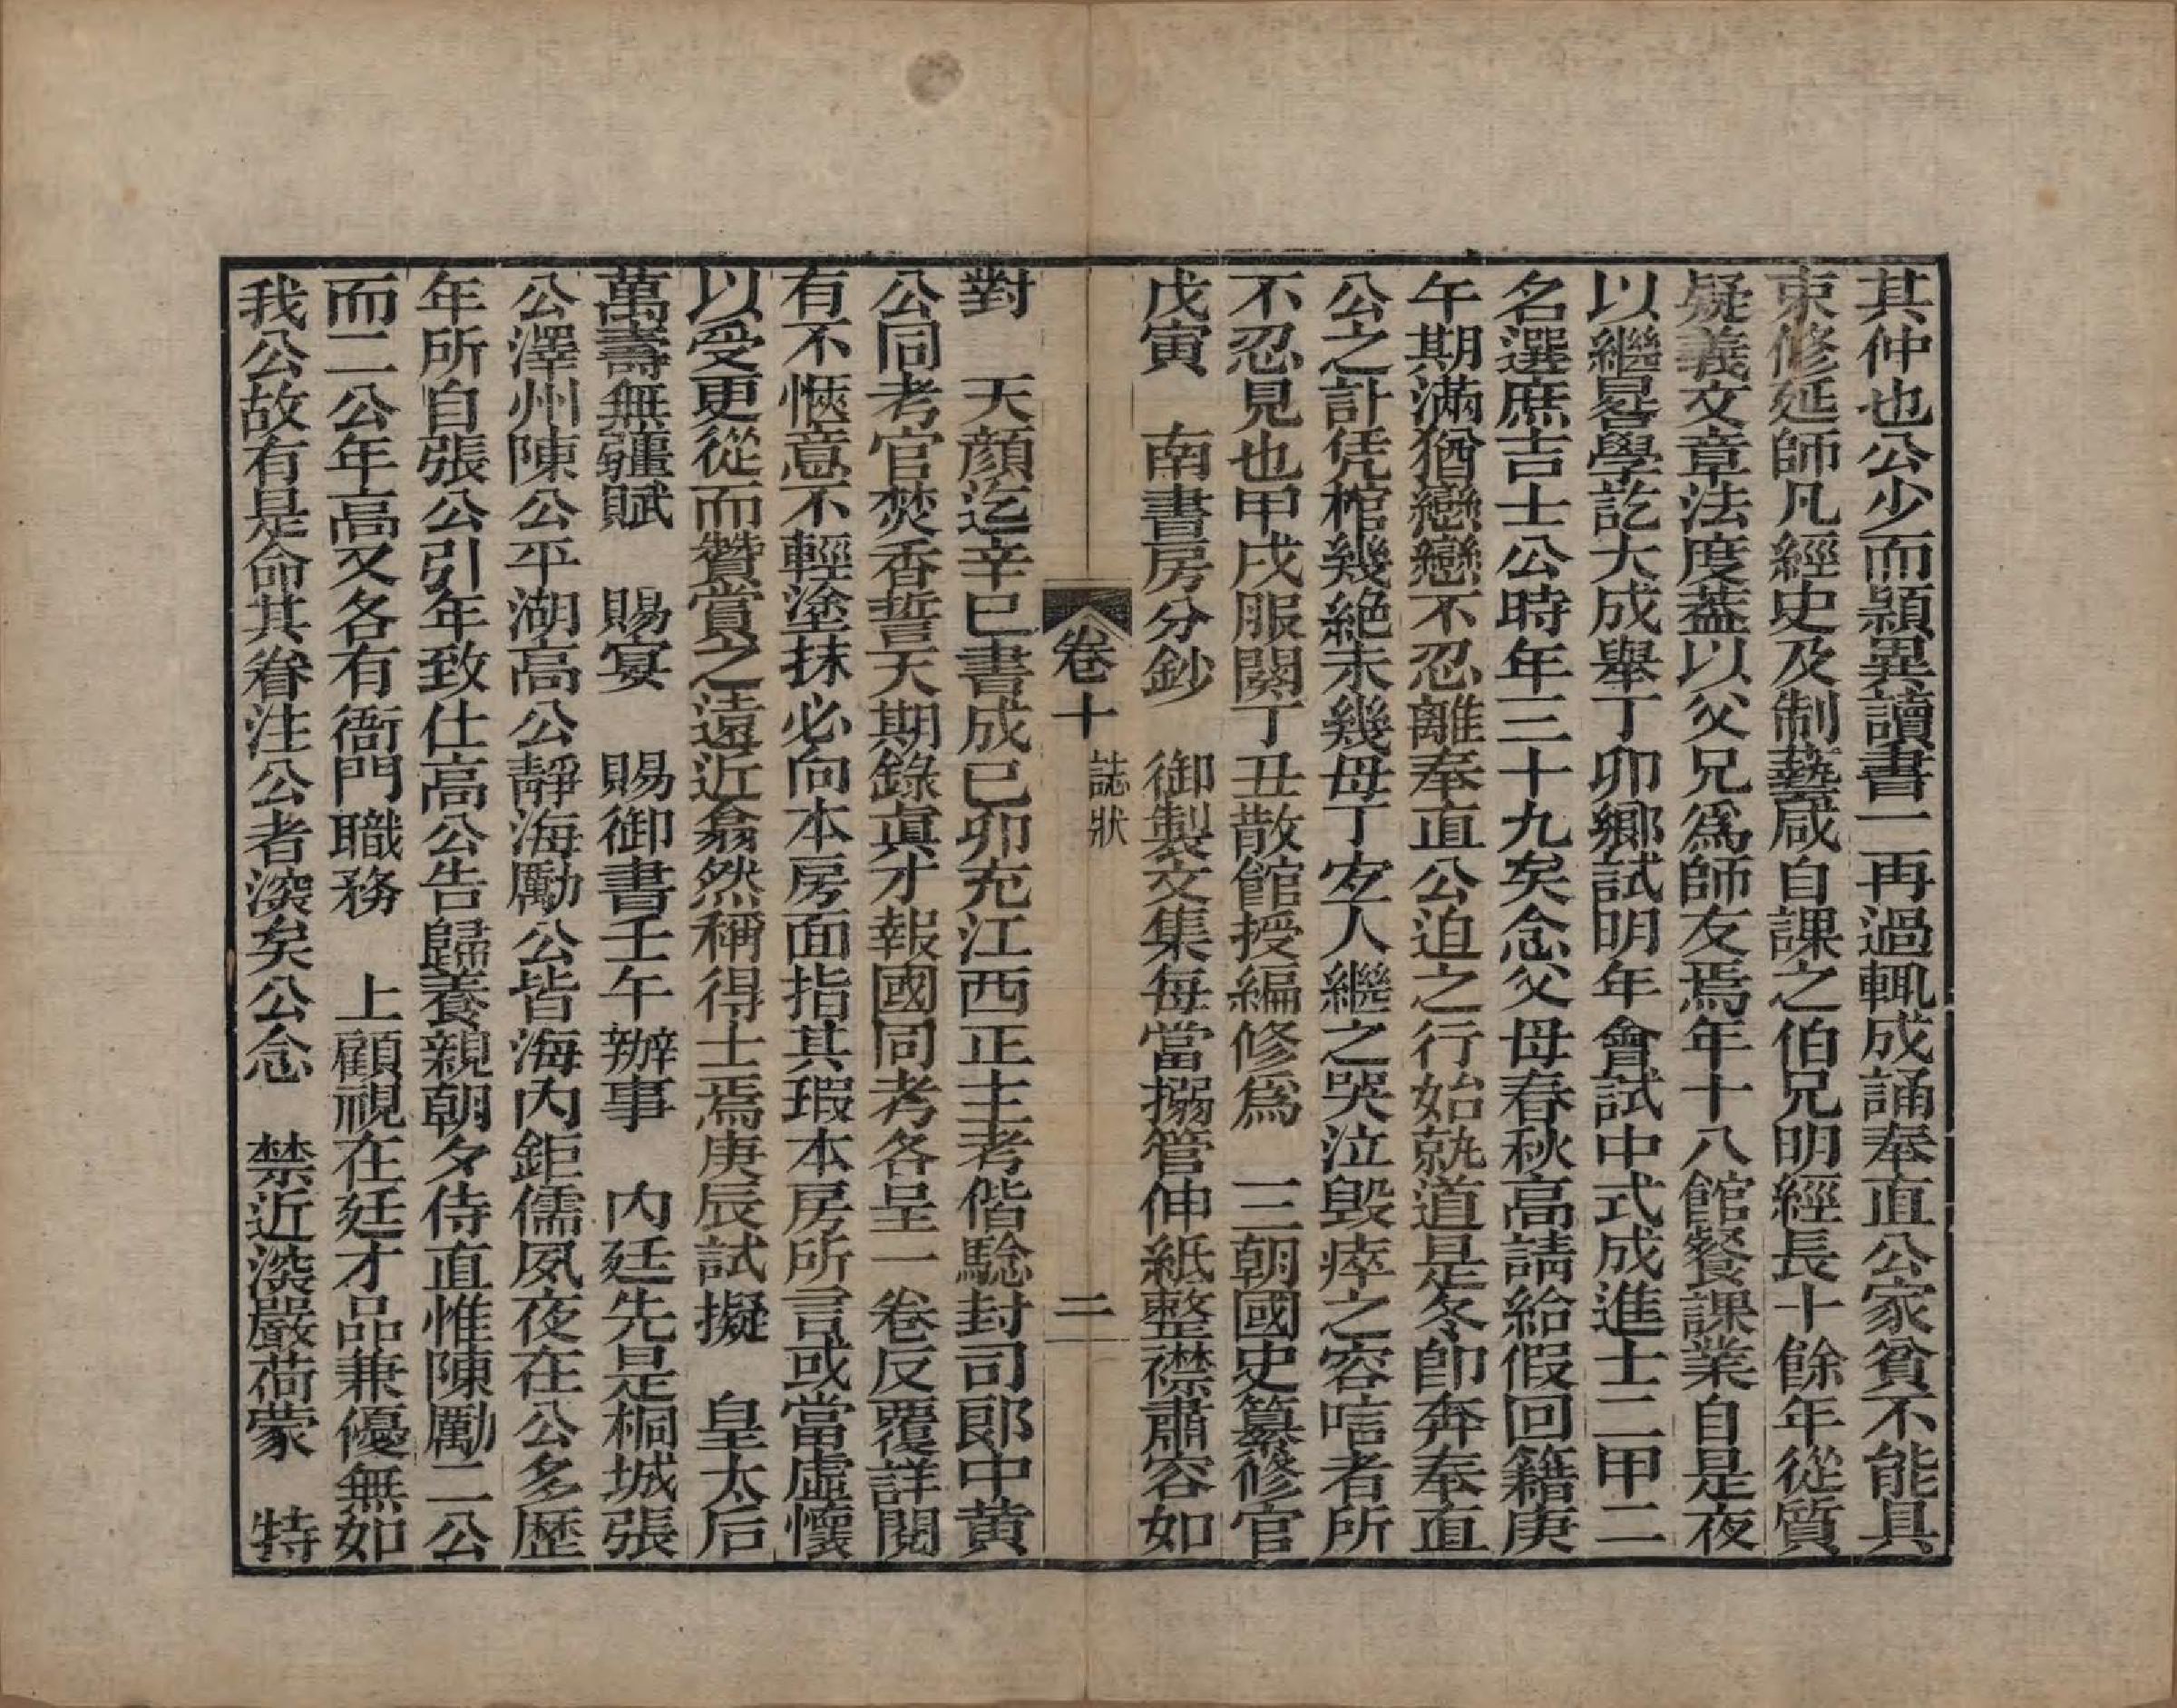 其仲也公少而頴異讀書一再過輒成誦奉直公家貧不能具
束修延師凡經史及制藝咸自課之伯兄明經長十餘年從質
疑義文章法度葢以父兄爲師友焉年十八館餐課業自是夜
以繼晷學訖大成舉丁卯鄉試明年會試中式成進士二甲二
名選庶吉士公時年三十九矣念父母春秋高請給假回籍庚
午期滿猶戀戀不忍離奉直公迫之行始就道是冬卽奔奉直
公之訃凭棺幾絶未幾母丁安人繼之哭泣毁瘁之容唁者所
不忍見也甲戌服闋丁丑散館授編修爲　三朝國史纂修官
戊寅　南書房分鈔　御製文集每當搦管伸紙整襟肅容如
卷十　誌狀　二
對　天顔迄辛巳書成己卯充江西正主考偕驗封司郎中黄
公同考官焚香誓天期錄眞才報國同考各呈一卷反覆詳閱
有不愜意不輕塗抹必向本房面指其瑕本房所言或當虛懷
以受更從而贊賞之遠近翕然稱得士焉庚辰試擬　皇太后
萬壽無疆賦　賜宴　賜御書壬午辦事　内廷先是桐城張
公澤州陳公平湖高公靜海勵公皆海内鉅儒夙夜在公多歷
年所自張公引年致仕高公告歸養親朝夕侍直惟陳勵二公
而二公年高又各有衙門職務　上顧視在廷才品兼優無如
我公故有是命其眷注公者深矣公念　禁近深嚴荷蒙　特